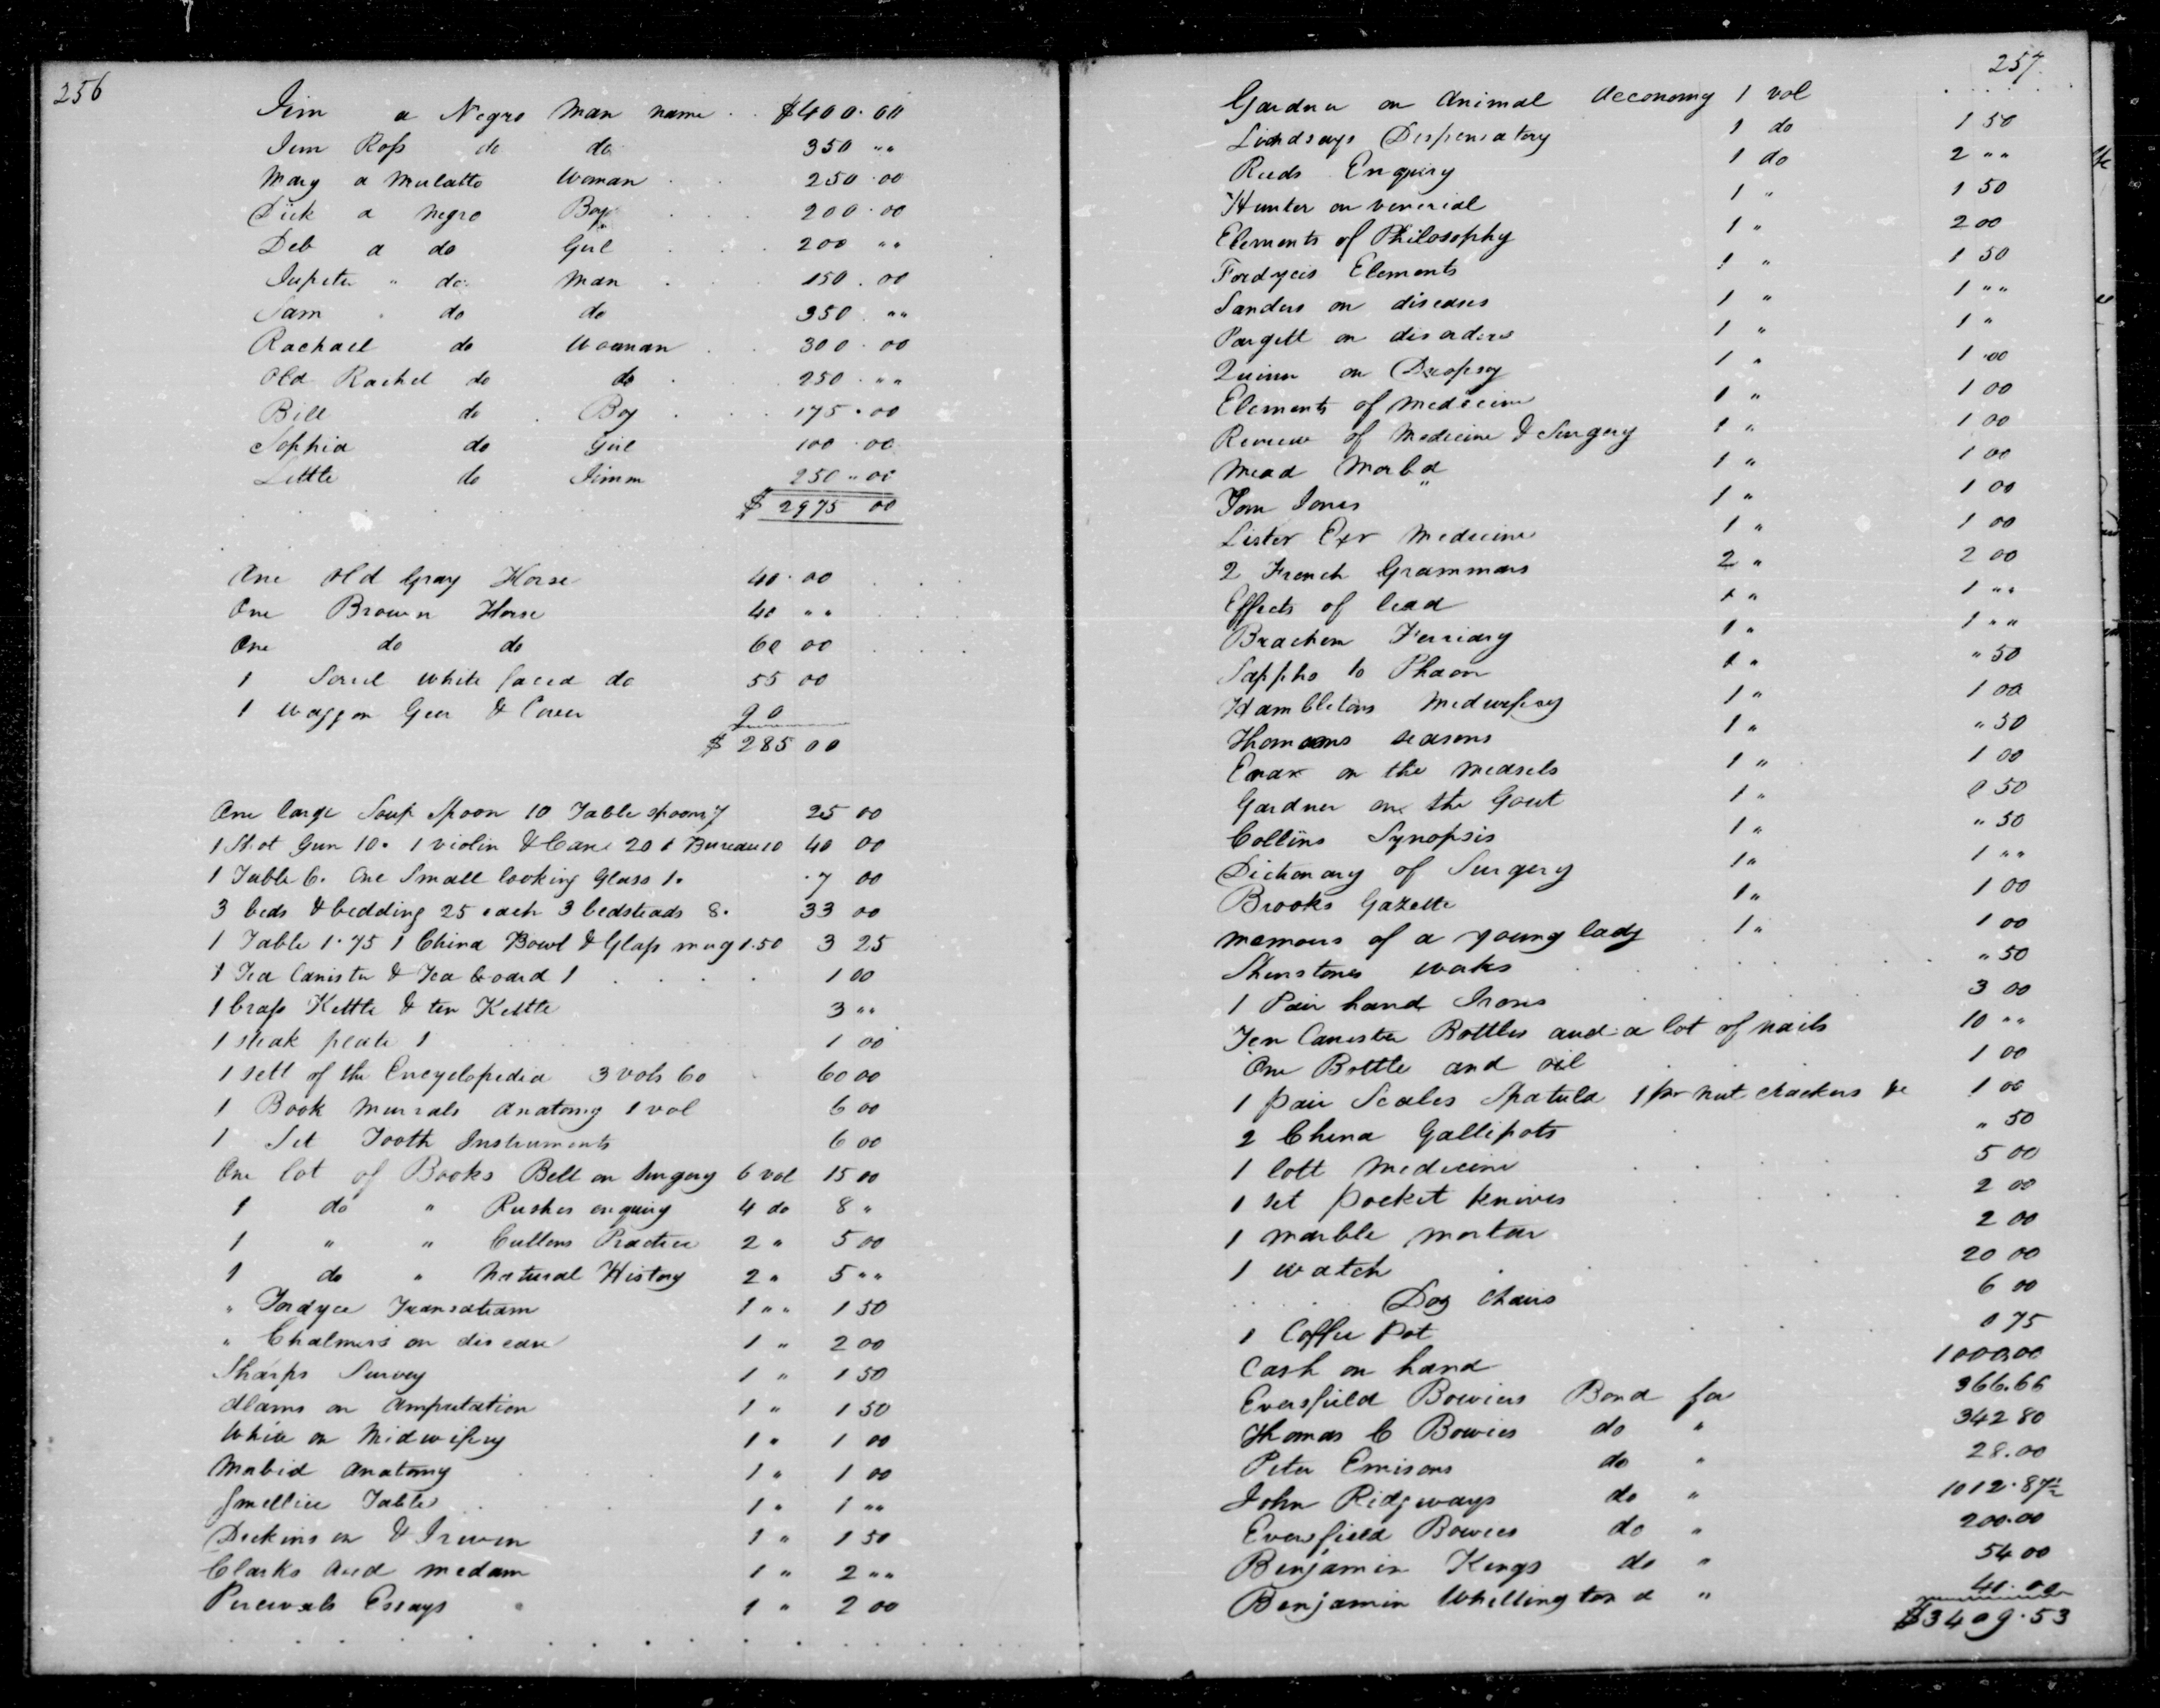 256
Jim a Negro Man name $400.00
Jem Ross do do 350 ""
Mary a Mulatto Woman 250.00
Dick a Negro Boy 200.00
Deb a do Girl 200 ""
Jupiter " do Man 150.00
Sam do do 350 ""
Rachael do Woman 300.00
Old Rachel do do 250 ""
Bill do Boy 175.00
Sophia do Girl 100.00
Little do Jimm 250"00
$2975 00
One Old Gray Horse 40.00
One Brown Horse 40 ""
One do do 60 00
1 Sorrel white faced do 55 00
1 Waggon Geer & Cover 90
$285 00
One large Soup Spoon 10 Table spoons 25 00
1 Shot Gun 10. 1 violin & Case 20 1 Bureau 10 40 00
1 Table 6. One Small looking Glass 1. 7 00
3 beds & bedding 25 each 3 bedsteads 8. 33 00
1 Table 1.75 1 China Bowl & Glass mug 1.50 3 25
1 Tea Canister & Tea board 1 1 00
1 brass Kettle & tin Kettle 3 ""
1 steak plate 1 1 00
1 sett of the Encyclopedia 3 vols 60 60 00
1 Book Murrals Anatomy 1 vol 6 00
1 Set Tooth Instruments 6 00
One lot of Books Bell on Surgery 6 vol 15 00
1 do " Rushes enquiry 4 do 8 "
1 " " Cullens Practice 2 " 5 00
1 do " Natural History 2 " 5 ""
" Fordyce 1 "" 1 50
" Chalmers on disease 1 " 2 00
Sharps Survey 1 " 1 50
Alams on Amputation 1 " 1 50
White on Midwifery 1 " 1 00
Mabid Anatomy 1 " 1 00
Smellice Tables 1 " 1 ""
Dickinson & Irwin 1 " 1 50
Clarks and medam 1 " 2 ""
Percivals Essays 1 " 2 00
257
Gardner on Animal Aeconomy 1 vol
Lindsays Dispensatory 1 do 1 50
Reeds Enquiry 1 do 2 ""
Hunter on venerial 1 " 1 50
Elements of Philosophy 1 " 2 00
Fordyces Elements 1 " 1 50
Sanders on diseases 1 " 1 ""
Pargett on disorders 1 " 1 "
Quinn on Dropsy 1 " 1 00
Elements of Medicine 1 " 1 00
Review of Medicine & Surgery 1 " 1 00
Mead Morbd 1 " 1 00
Tom Jones 1 " 1 00
Lister Exr Medicine 1 " 1 00
2 French Grammars 2 " 2 00
Effects of lead 1 " 1 ""
Bracken Ferriary 1 " 1 ""
Sappho to Phaon 1 " " 50
Hambletons Medwifery 1 " 1 00
Thomsons seasons 1 " " 50
on the Measels 1 " 1 00
Gardner on the Gout 1 " 0 50
Collins Synopsis 1 " " 50
Dictionary of Surgery 1 " 1 ""
Brooks Gazette 1 " 1 00
Memoirs of a young lady 1 " 1 00
Shenstones works " 50
1 Pair hand Irons 3 00
Ten Canister Bottles and a lot of nails 10 ""
One Bottle and oil 1 00
1 pair Scales Spatula 1 pr nut crackers &c 1 00
2 China Gallipots " 50
1 lott Medicine 5 00
1 set pocket knives 2 00
1 marble mortar 2 00
1 watch 20 00
Doz chairs 6 00
1 Coffee Pot 0 75
Cash on hand 1000.00
Eversfield Bowies Bond for 366.66
Thomas C Bowies do " 342 80
Peter Emisons do " 28.00
John Ridgways do " 1012.87½
Eversfield Bowies do " 200.00
Benjamin Kings do " 54 00
Benjamin Whellington d " 40.00
$3409.53